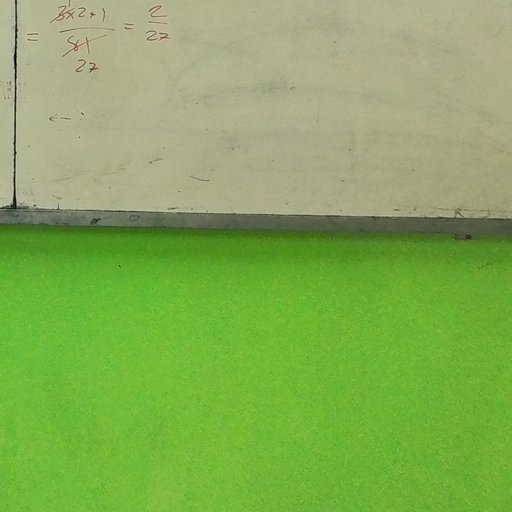 = 3x2x1 / 81 = 2 / 27
27